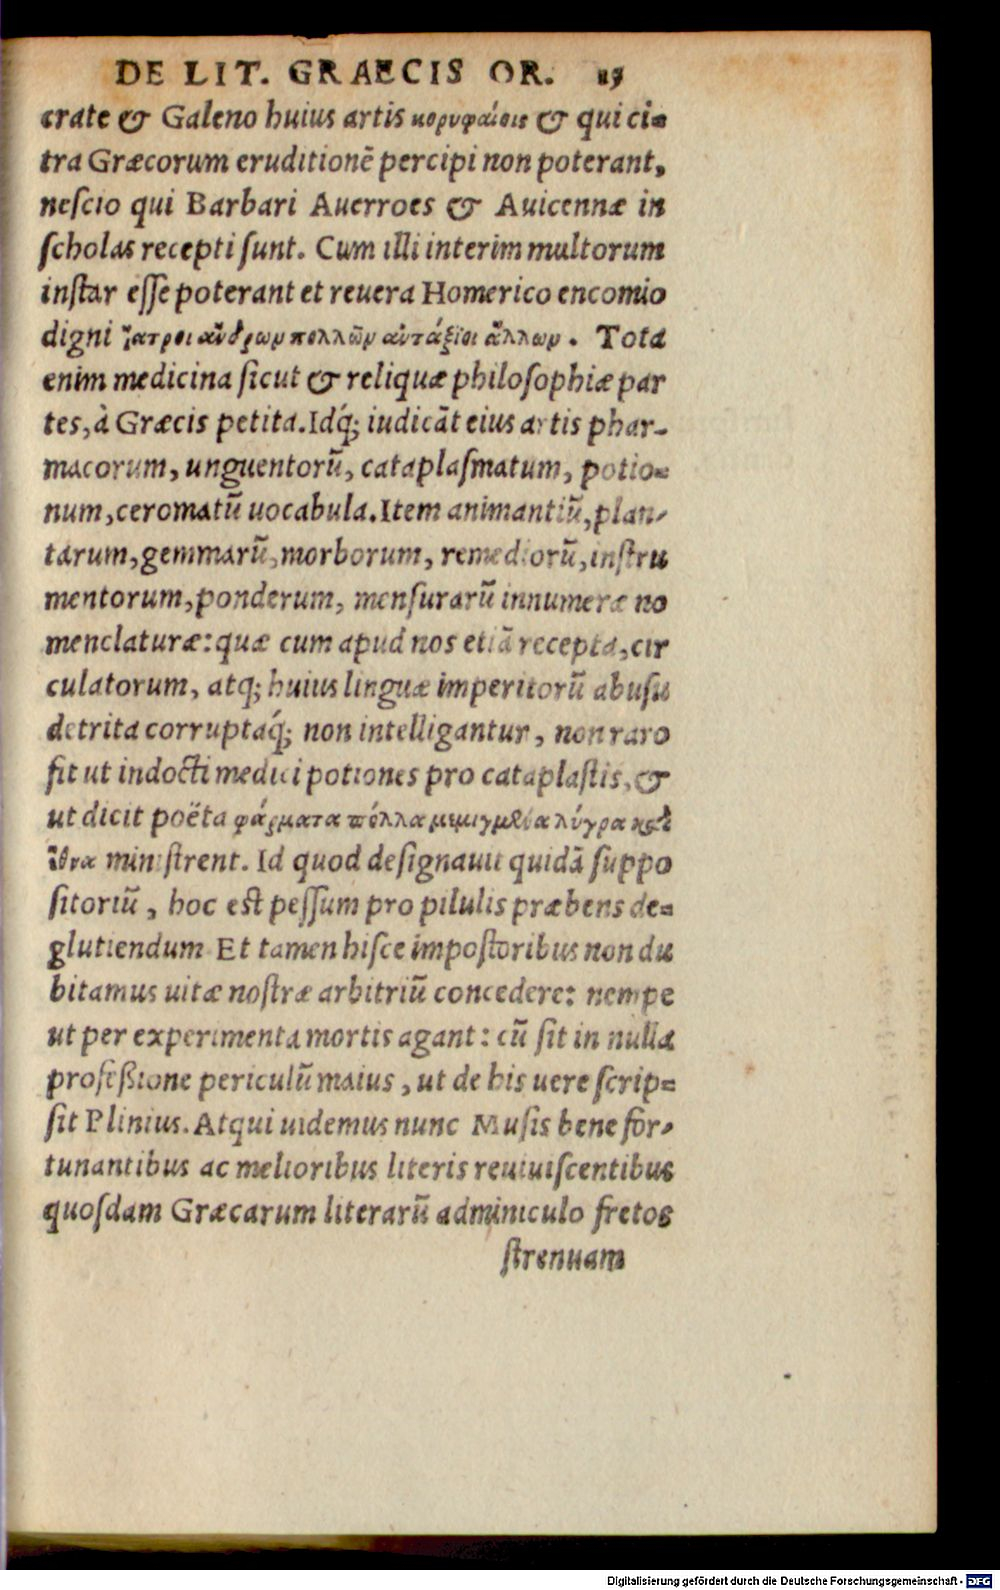 DE LIT. GRAECIS OR.
crate & Galeno huius artis κορυφαίοις & qui ci=
tra Græcorum eruditionē percipi non poterant,
nescio qui Barbari Auerroes & Auicennæ in
scholas recepti sunt. Cum illi interim multorum
instar esse poterant et reuera Homerico encomio
digni ἰατροι ἀνδρων πολλῶν αντάξιοι ἄλλων. Tota
enim medicina sicut & reliquæ philosophiæ par
tes, à Græcis petita. Idq́; iudicāt eius artis phar-
macorum, unguentorū, cataplasmatum, potio=
num, ceromatū uocabula. Item animantiū, plan-
tarum, gemmarū, morborum, remediorū, instru
mentorum, ponderum, mensurarū innumeræ no
menclaturæ: quæ cum apud nos etiā recepta, cir
culatorum, atq; huius linguæ imperitorū abusu
detrita corruptaq́; non intelligantur, non raro
fit ut indocti medici potiones pro cataplastis, &
ut dicit poëta φάρματα πόλλα μεμιγμένα λύγρα
ministrent. Id quod designauit quidā suppo
sitoriū, hoc est pessum pro pilulis præbens de=
glutiendum Et tamen hisce impostoribus non du
bitamus uitæ nostræ arbitriū concedere: nempe
ut per experimenta mortis agant: cū sit in nulla
profeßione periculū maius, ut de his uere scrip=
sit Plinius. Atqui uidemus nunc Musis bene for-
tunantibus ac melioribus literis reuiuiscentibus
quosdam Græcarum literarū adminiculo fretos
strenuam
Digitalisierung gefördert durch die Deutsche Forschungsgemeinschaft - DFG